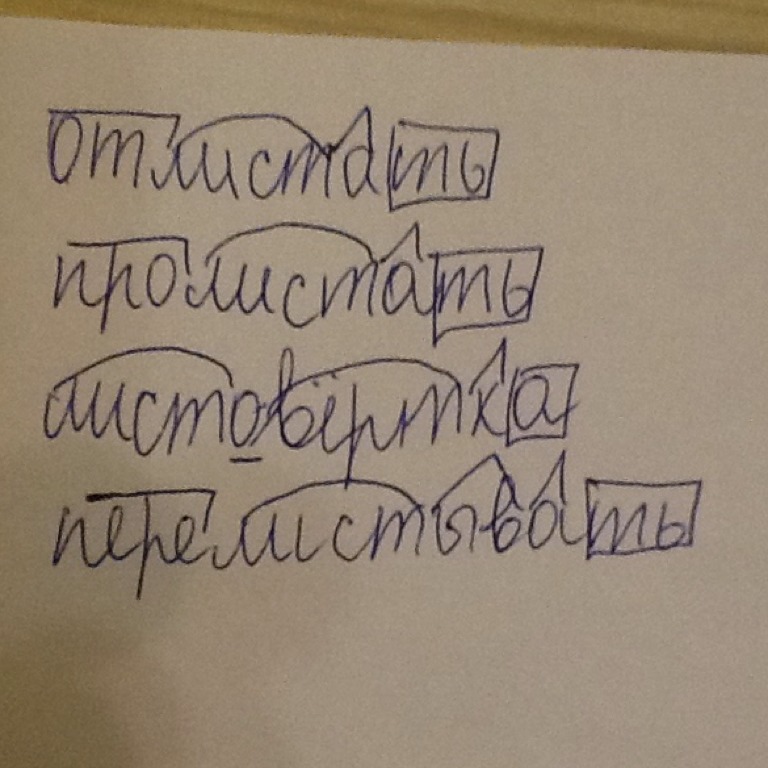 отлистать
пролистать
листовёртка
перелистывать